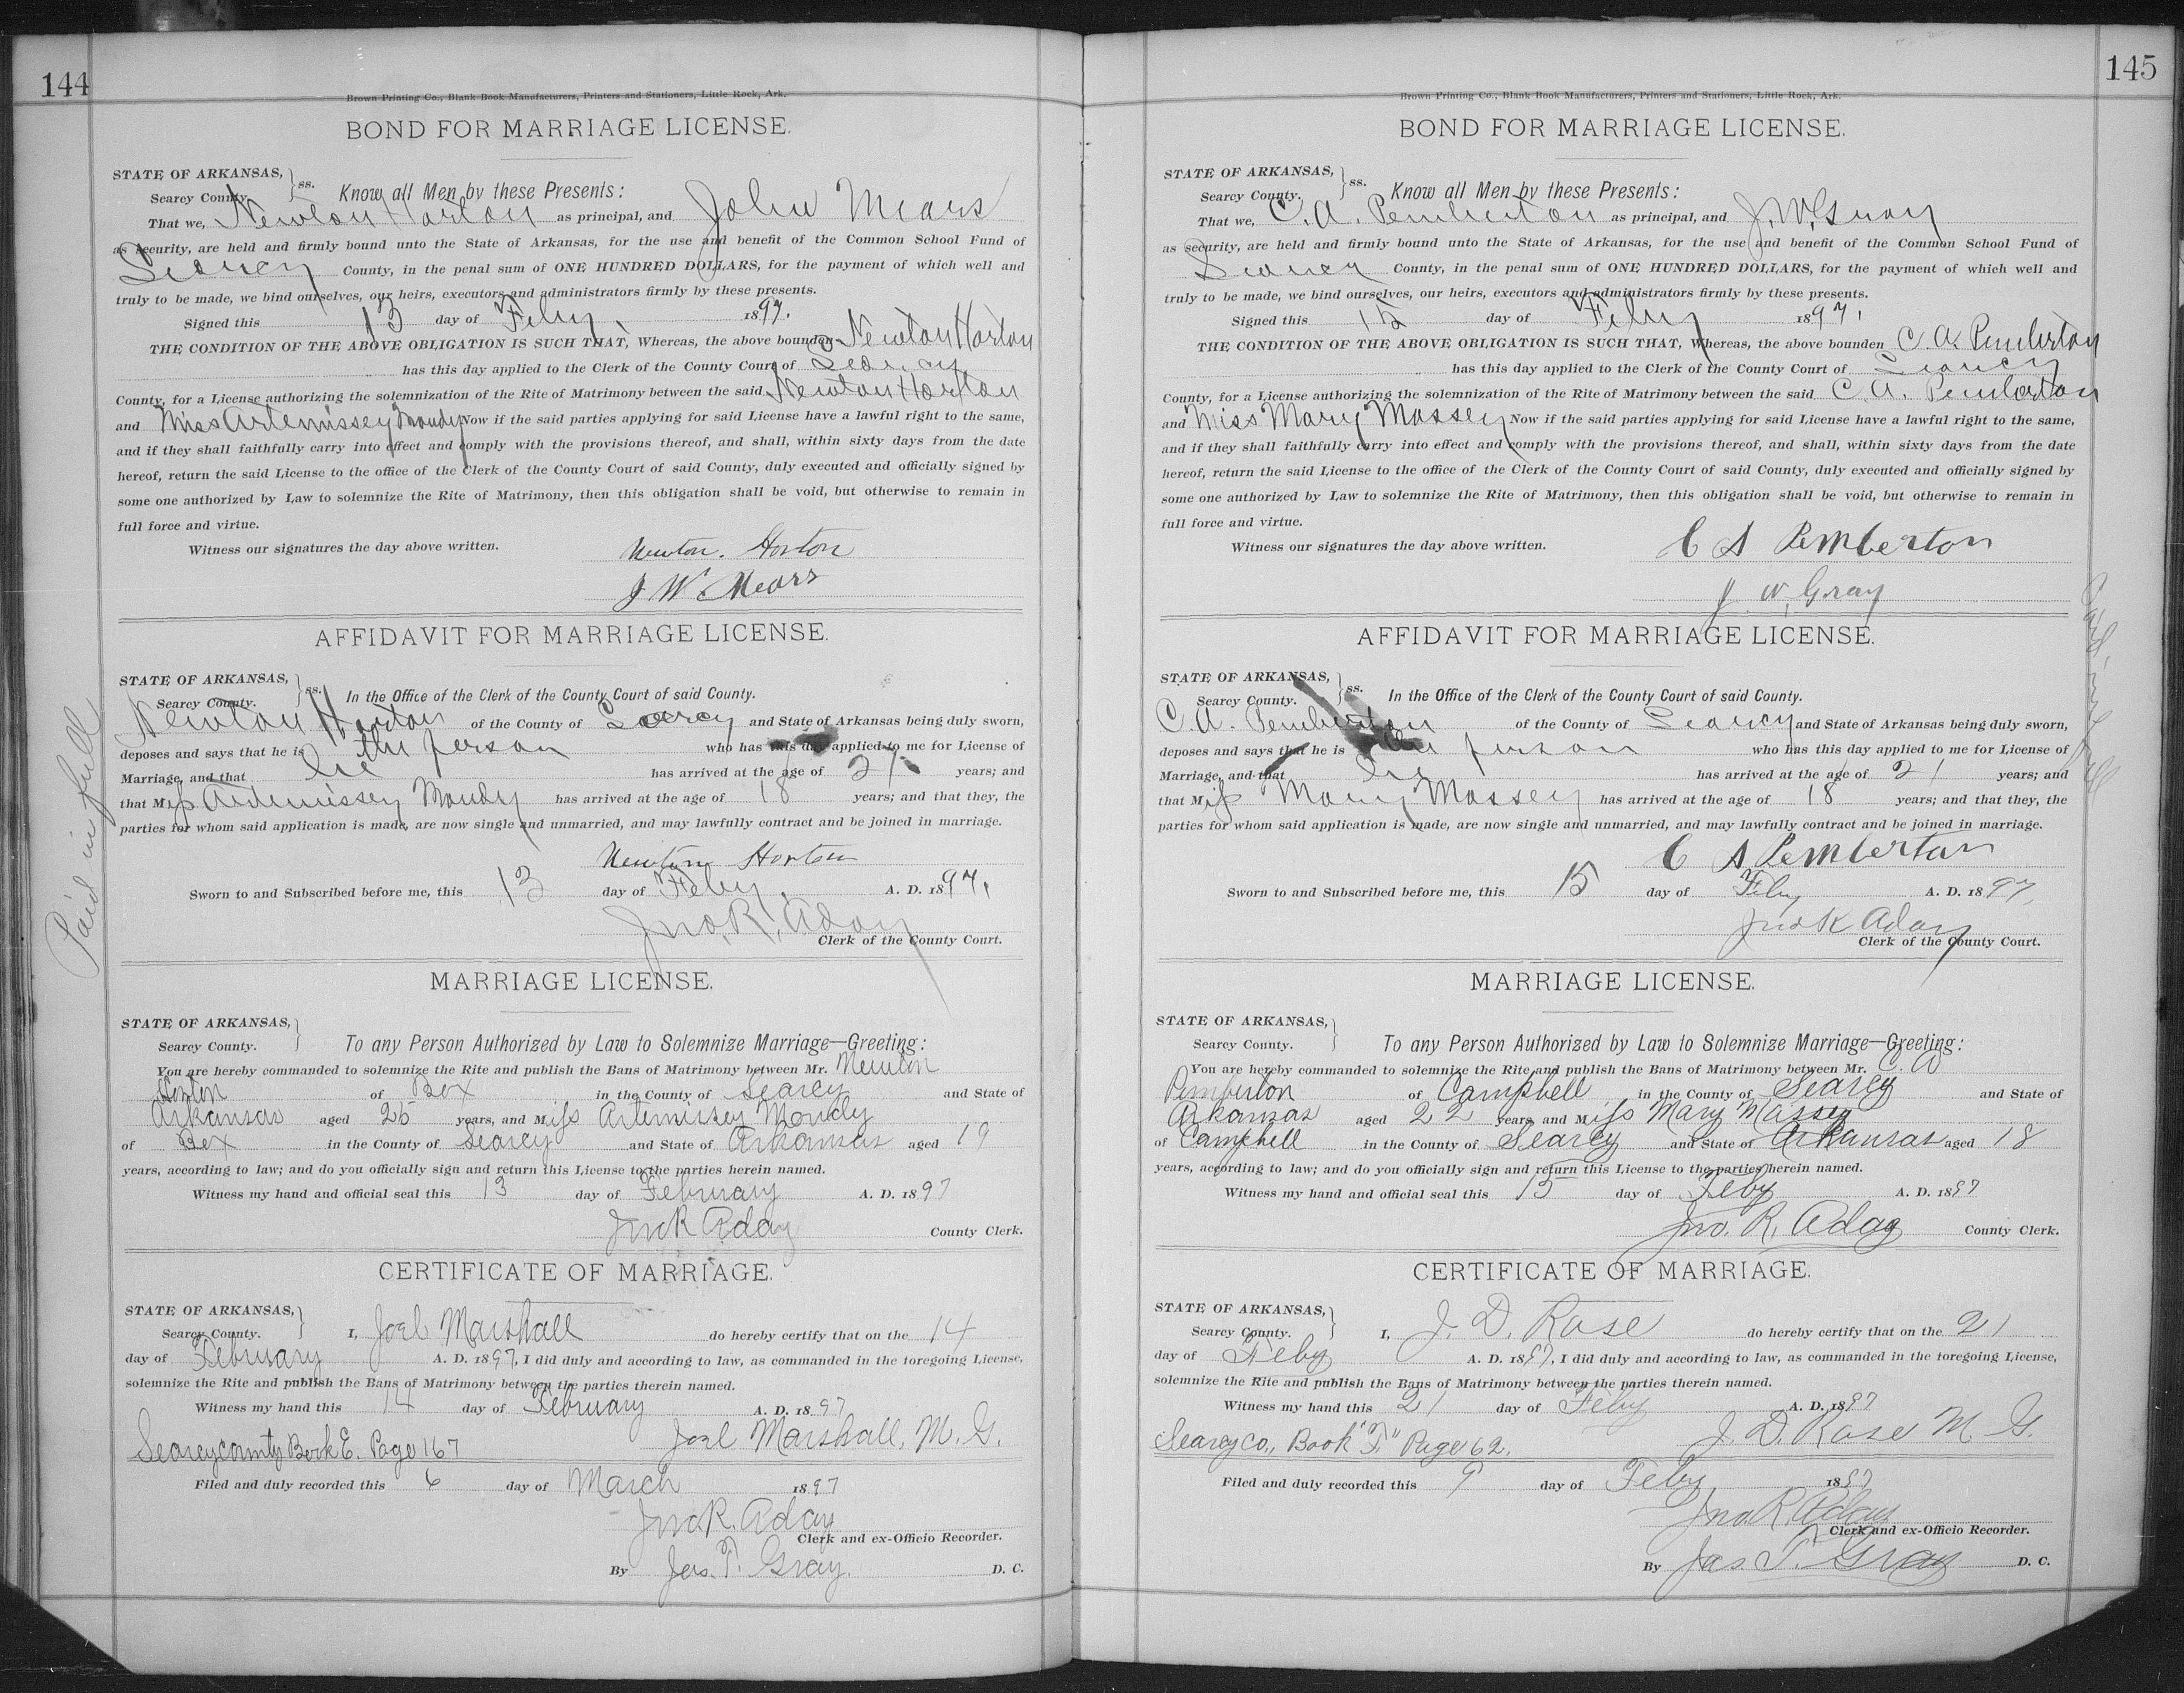 144
Brown Printing Co., Blank Book Manufacturers, Printers and Stationers, Little Rock, Ark.
BOND FOR MARRIAGE LICENSE.
STATE OF ARKANSAS,
Searcy County. } ss. Know all Men by these Presents:
That we, Newton Horton as principal, and John Mears
as security, are held and firmly bound unto the State of Arkansas, for the use and benefit of the Common School Fund of
Searcy County, in the penal sum of ONE HUNDRED DOLLARS, for the payment of which well and
truly to be made, we bind ourselves, our heirs, executors and administrators firmly by these presents.
Signed this 13 day of Feby. 1897.
THE CONDITION OF THE ABOVE OBLIGATION IS SUCH THAT, Whereas, the above bounden Newton Horton
has this day applied to the Clerk of the County Court of Searcy
County, for a License authorizing the solemnization of the Rite of Matrimony between the said Newton Horton
and Miss Artemissey Moudy Now if the said parties applying for said License have a lawful right to the same,
and if they shall faithfully carry into effect and comply with the provisions thereof, and shall, within sixty days from the date
hereof, return the said License to the office of the Clerk of the County Court of said County, duly executed and officially signed by
some one authorized by Law to solemnize the Rite of Matrimony, then this obligation shall be void, but otherwise to remain in
full force and virtue.
Witness our signatures the day above written.
Newton. Horton
J W Mears
AFFIDAVIT FOR MARRIAGE LICENSE.
STATE OF ARKANSAS,
Searcy County. } ss. In the Office of the Clerk of the County Court of said County.
Newton Horton of the County of Searcy and State of Arkansas being duly sworn,
deposes and says that he is the person who has this day applied to me for License of
Marriage, and that he has arrived at the age of 21 years; and
that Miss Artemissey Moudy has arrived at the age of 18 years; and that they, the
parties for whom said application is made, are now single and unmarried, and may lawfully contract and be joined in marriage.
Newton Horton
Sworn to and Subscribed before me, this 13 day of Feby. A. D. 1897.
Jno. R. Aday
Clerk of the County Court.
Paid in full
MARRIAGE LICENSE.
STATE OF ARKANSAS,
Searcy County. } To any Person Authorized by Law to Solemnize Marriage—Greeting:
You are hereby commanded to solemnize the Rite and publish the Bans of Matrimony between Mr. Newton
Horton of Bex in the County of Searcy and State of
Arkansas aged 25 years, and Miss Artemissey Moudy
of Bex in the County of Searcy and State of Arkansas aged 19
years, according to law; and do you officially sign and return this License to the parties herein named.
Witness my hand and official seal this 13 day of February A. D. 1897
Jno R Aday County Clerk.
CERTIFICATE OF MARRIAGE.
STATE OF ARKANSAS,
Searcy County. } I, Joel Marshall do hereby certify that on the 14
day of February A. D. 1897, I did duly and according to law, as commanded in the foregoing License,
solemnize the Rite and publish the Bans of Matrimony between the parties therein named.
Witness my hand this 14 day of February A. D. 1897
Searcy County Book E. Page 167 Joel Marshall, M. G.
Filed and duly recorded this 6 day of March 1897
Jno. R. Aday
Clerk and ex-Officio Recorder.
By Jas. T. Gray. D. C.
145
Brown Printing Co., Blank Book Manufacturers, Printers and Stationers, Little Rock, Ark.
BOND FOR MARRIAGE LICENSE.
STATE OF ARKANSAS,
Searcy County. } ss. Know all Men by these Presents:
That we, C. A. Pemberton as principal, and J. W. Gray
as security, are held and firmly bound unto the State of Arkansas, for the use and benefit of the Common School Fund of
Searcy County, in the penal sum of ONE HUNDRED DOLLARS, for the payment of which well and
truly to be made, we bind ourselves, our heirs, executors and administrators firmly by these presents.
Signed this 15 day of Feby 1897.
THE CONDITION OF THE ABOVE OBLIGATION IS SUCH THAT, Whereas, the above bounden C. A. Pemberton
has this day applied to the Clerk of the County Court of Searcy
County, for a License authorizing the solemnization of the Rite of Matrimony between the said C. A. Pemberton
and Miss Mary Massey Now if the said parties applying for said License have a lawful right to the same,
and if they shall faithfully carry into effect and comply with the provisions thereof, and shall, within sixty days from the date
hereof, return the said License to the office of the Clerk of the County Court of said County, duly executed and officially signed by
some one authorized by Law to solemnize the Rite of Matrimony, then this obligation shall be void, but otherwise to remain in
full force and virtue.
Witness our signatures the day above written.
C A Pemberton
J. W. Gray
AFFIDAVIT FOR MARRIAGE LICENSE.
STATE OF ARKANSAS,
Searcy County. } ss. In the Office of the Clerk of the County Court of said County.
C. A. Pemberton of the County of Searcy and State of Arkansas being duly sworn,
deposes and says that he is the person who has this day applied to me for License of
Marriage, and that he has arrived at the age of 21 years; and
that Miss Mary Massey has arrived at the age of 18 years; and that they, the
parties for whom said application is made, are now single and unmarried, and may lawfully contract and be joined in marriage.
C A Pemberton
Sworn to and Subscribed before me, this 15 day of Feby A. D. 1897.
Jno R Aday
Clerk of the County Court.
Paid in full
MARRIAGE LICENSE.
STATE OF ARKANSAS,
Searcy County. } To any Person Authorized by Law to Solemnize Marriage—Greeting:
You are hereby commanded to solemnize the Rite and publish the Bans of Matrimony between Mr. C. A
Pemberton of Campbell in the County of Searcy and State of
Arkansas aged 22 years, and Miss Mary Massey
of Campbell in the County of Searcy and State of Arkansas aged 18
years, according to law; and do you officially sign and return this License to the parties herein named.
Witness my hand and official seal this 15 day of Feby A. D. 1897
Jno. R. Aday County Clerk.
CERTIFICATE OF MARRIAGE.
STATE OF ARKANSAS,
Searcy County. } I, J. D. Rose do hereby certify that on the 21
day of Feby A. D. 1897, I did duly and according to law, as commanded in the foregoing License,
solemnize the Rite and publish the Bans of Matrimony between the parties therein named.
Witness my hand this 21 day of Feby A. D. 1897
Searcy Co., Book "F." Page 62. J. D. Rose M. G.
Filed and duly recorded this 9 day of Feby 1897
Jno. R. Aday
Clerk and ex-Officio Recorder.
By Jas. T. Gray D. C.